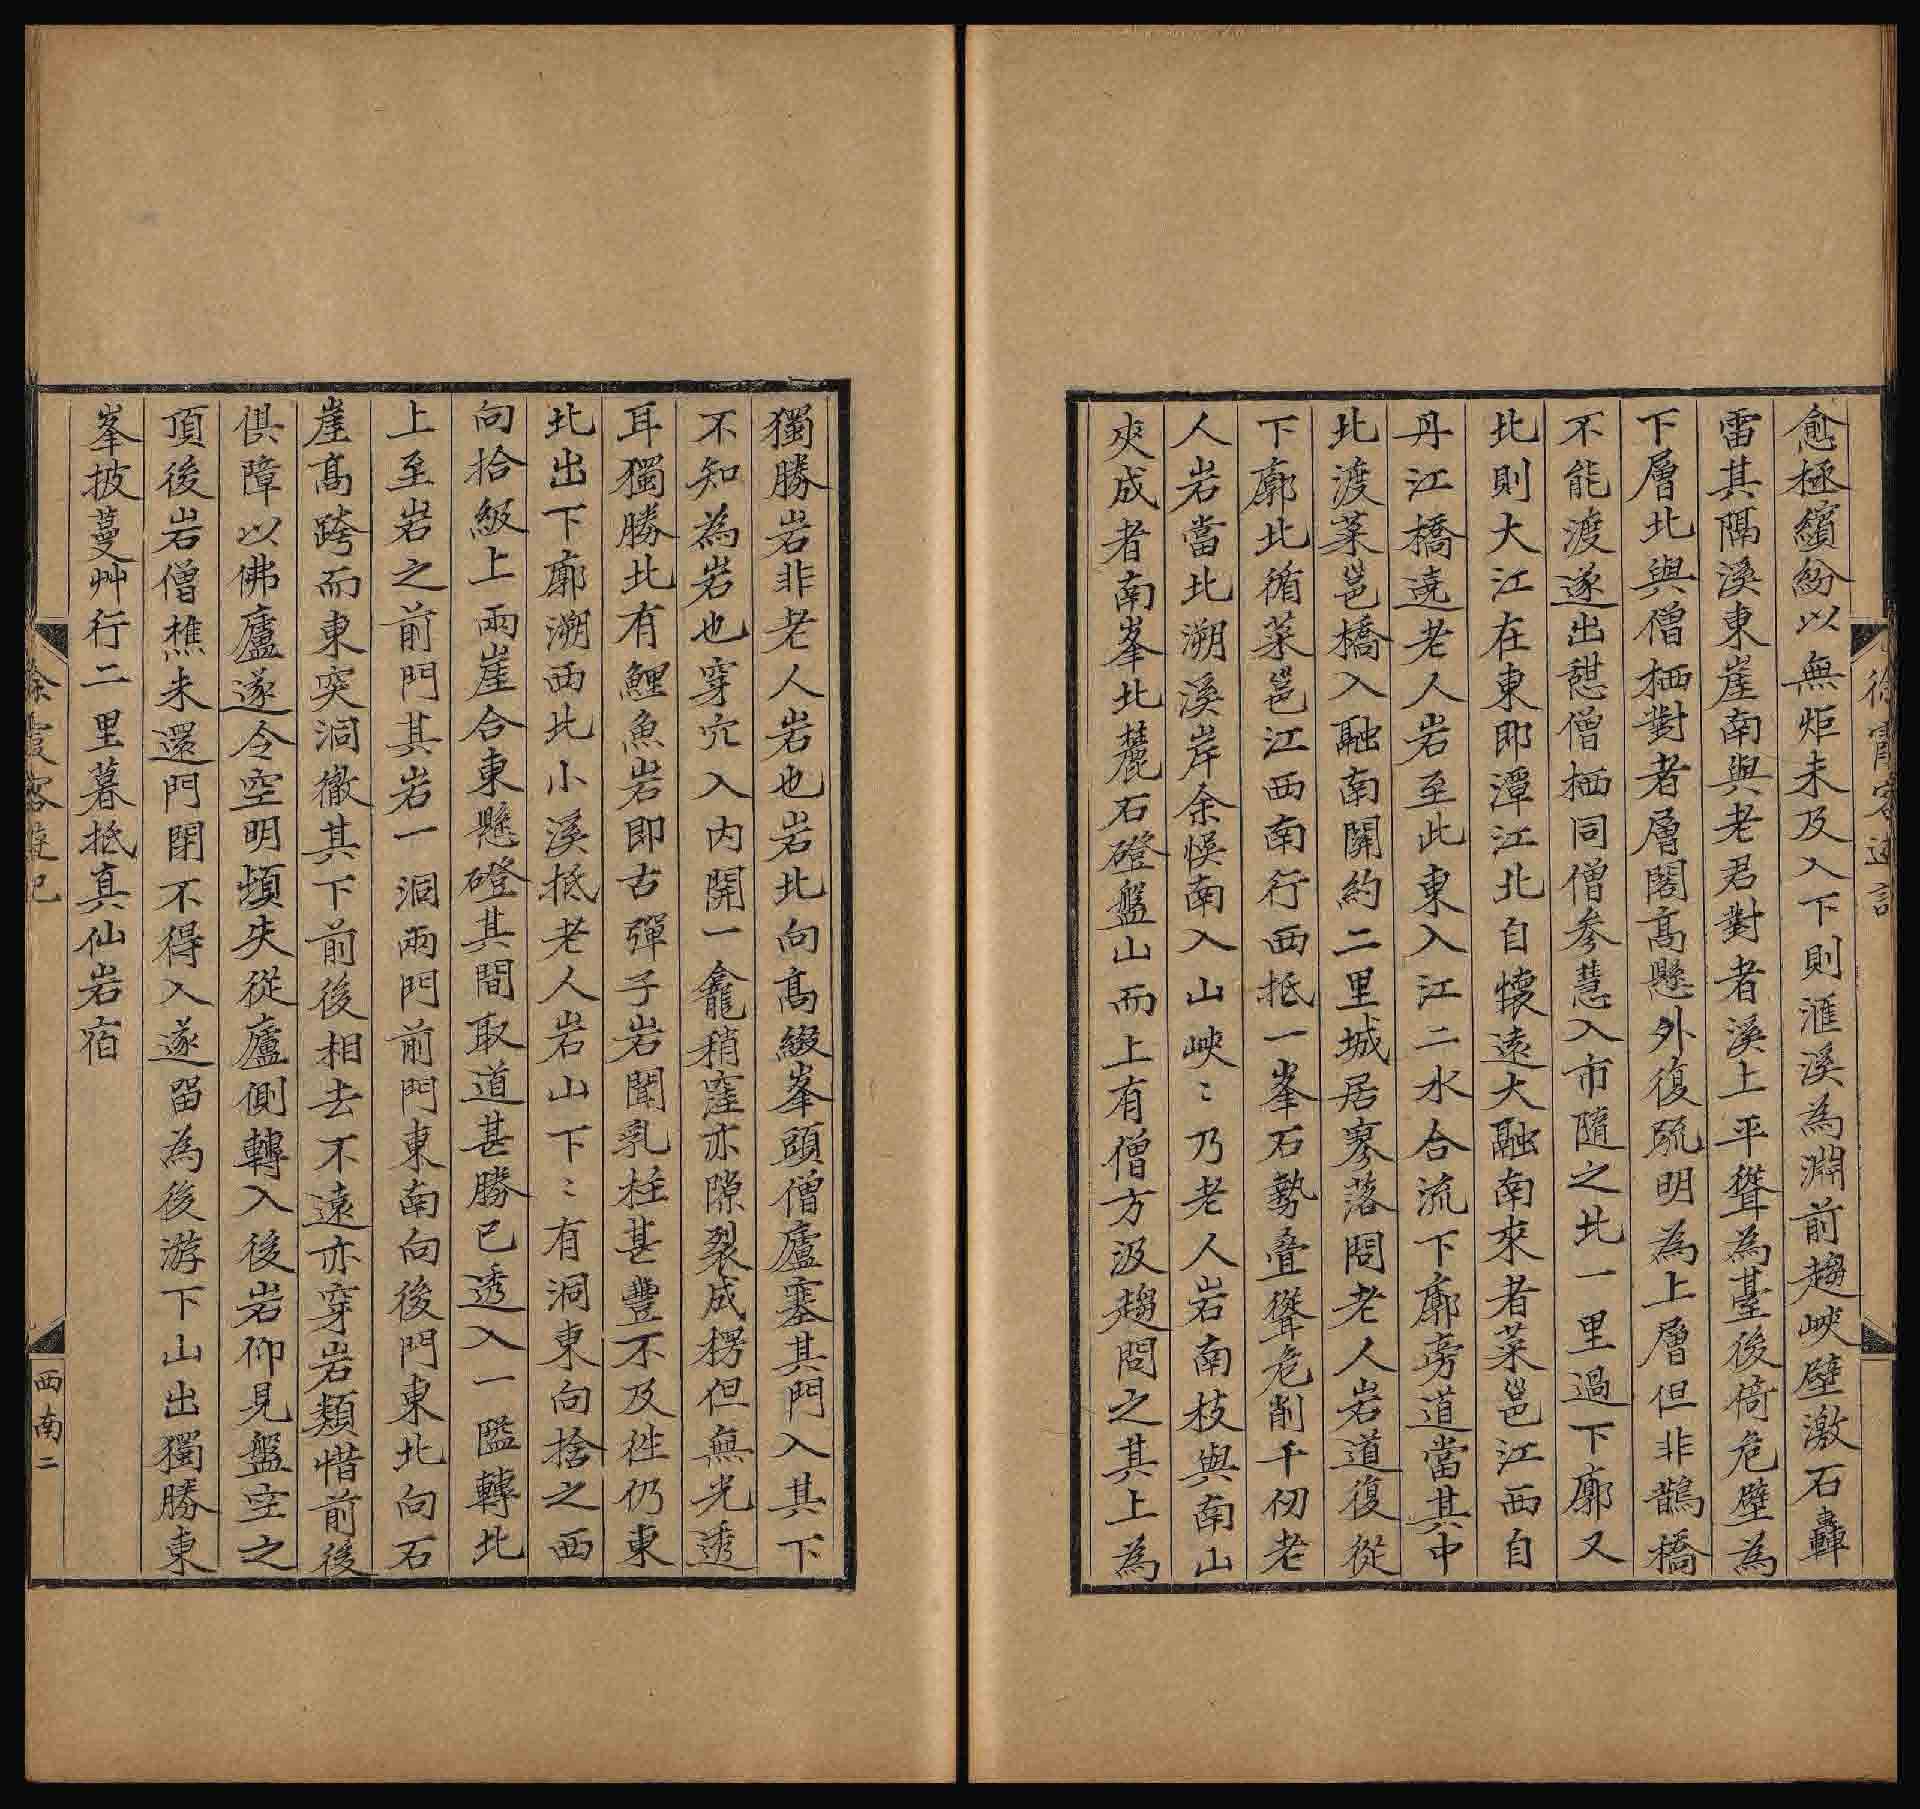 愈極繽紛以無炬未及入下則滙溪為淵前趨峽壁激石轟
雷其隔溪東崖南與老君對者溪上平聳為臺後倚危壁為
下層北與僧栖對者層閣高懸外復疏明為上層但非鵲橋
不能渡遂出憇僧栖同僧参慧入市隨之北一里過下廓又
北則大江在東即潭江北自懷遠大融南來者菜邕江西自
丹江橋遶老人岩至此東入江二水合流下廓旁道當其中
北渡菜邕橋入融南關約二里城居寥落問老人岩道復從
下廓北循菜邕江西南行西抵一峯石勢叠聳危削千仞老
人岩當北溯溪岸余悞南入山峽〻乃老人岩南枝與南山
夾成者南峯北麓石磴盤山而上有僧方汲趨問之其上為
徐霞客遊記
獨勝岩非老人岩也岩北向高綴峯頭僧廬塞其門入其下
不知為岩也穿穴入内開一龕稍窪亦隙裂成楞但無光透
耳獨勝北有鯉魚岩即古彈子岩聞乳柱甚豐不及徃仍東
北出下廓溯西北小溪抵老人岩山下〻有洞東向捨之西
向拾級上兩崖合東懸磴其間取道甚勝已透入一隘轉北
上至岩之前門其岩一洞兩門前門東南向後門東北向石
崖高跨而東突洞徹其下前後相去不遠亦穿岩類惜前後
俱障以佛廬遂令空明頓失從廬側轉入後岩仰見盤空之
頂後岩僧樵未還門閉不得入遂留為後游下山出獨勝東
峯披蔓艸行二里暮抵真仙岩宿
徐霞客遊記
西南二